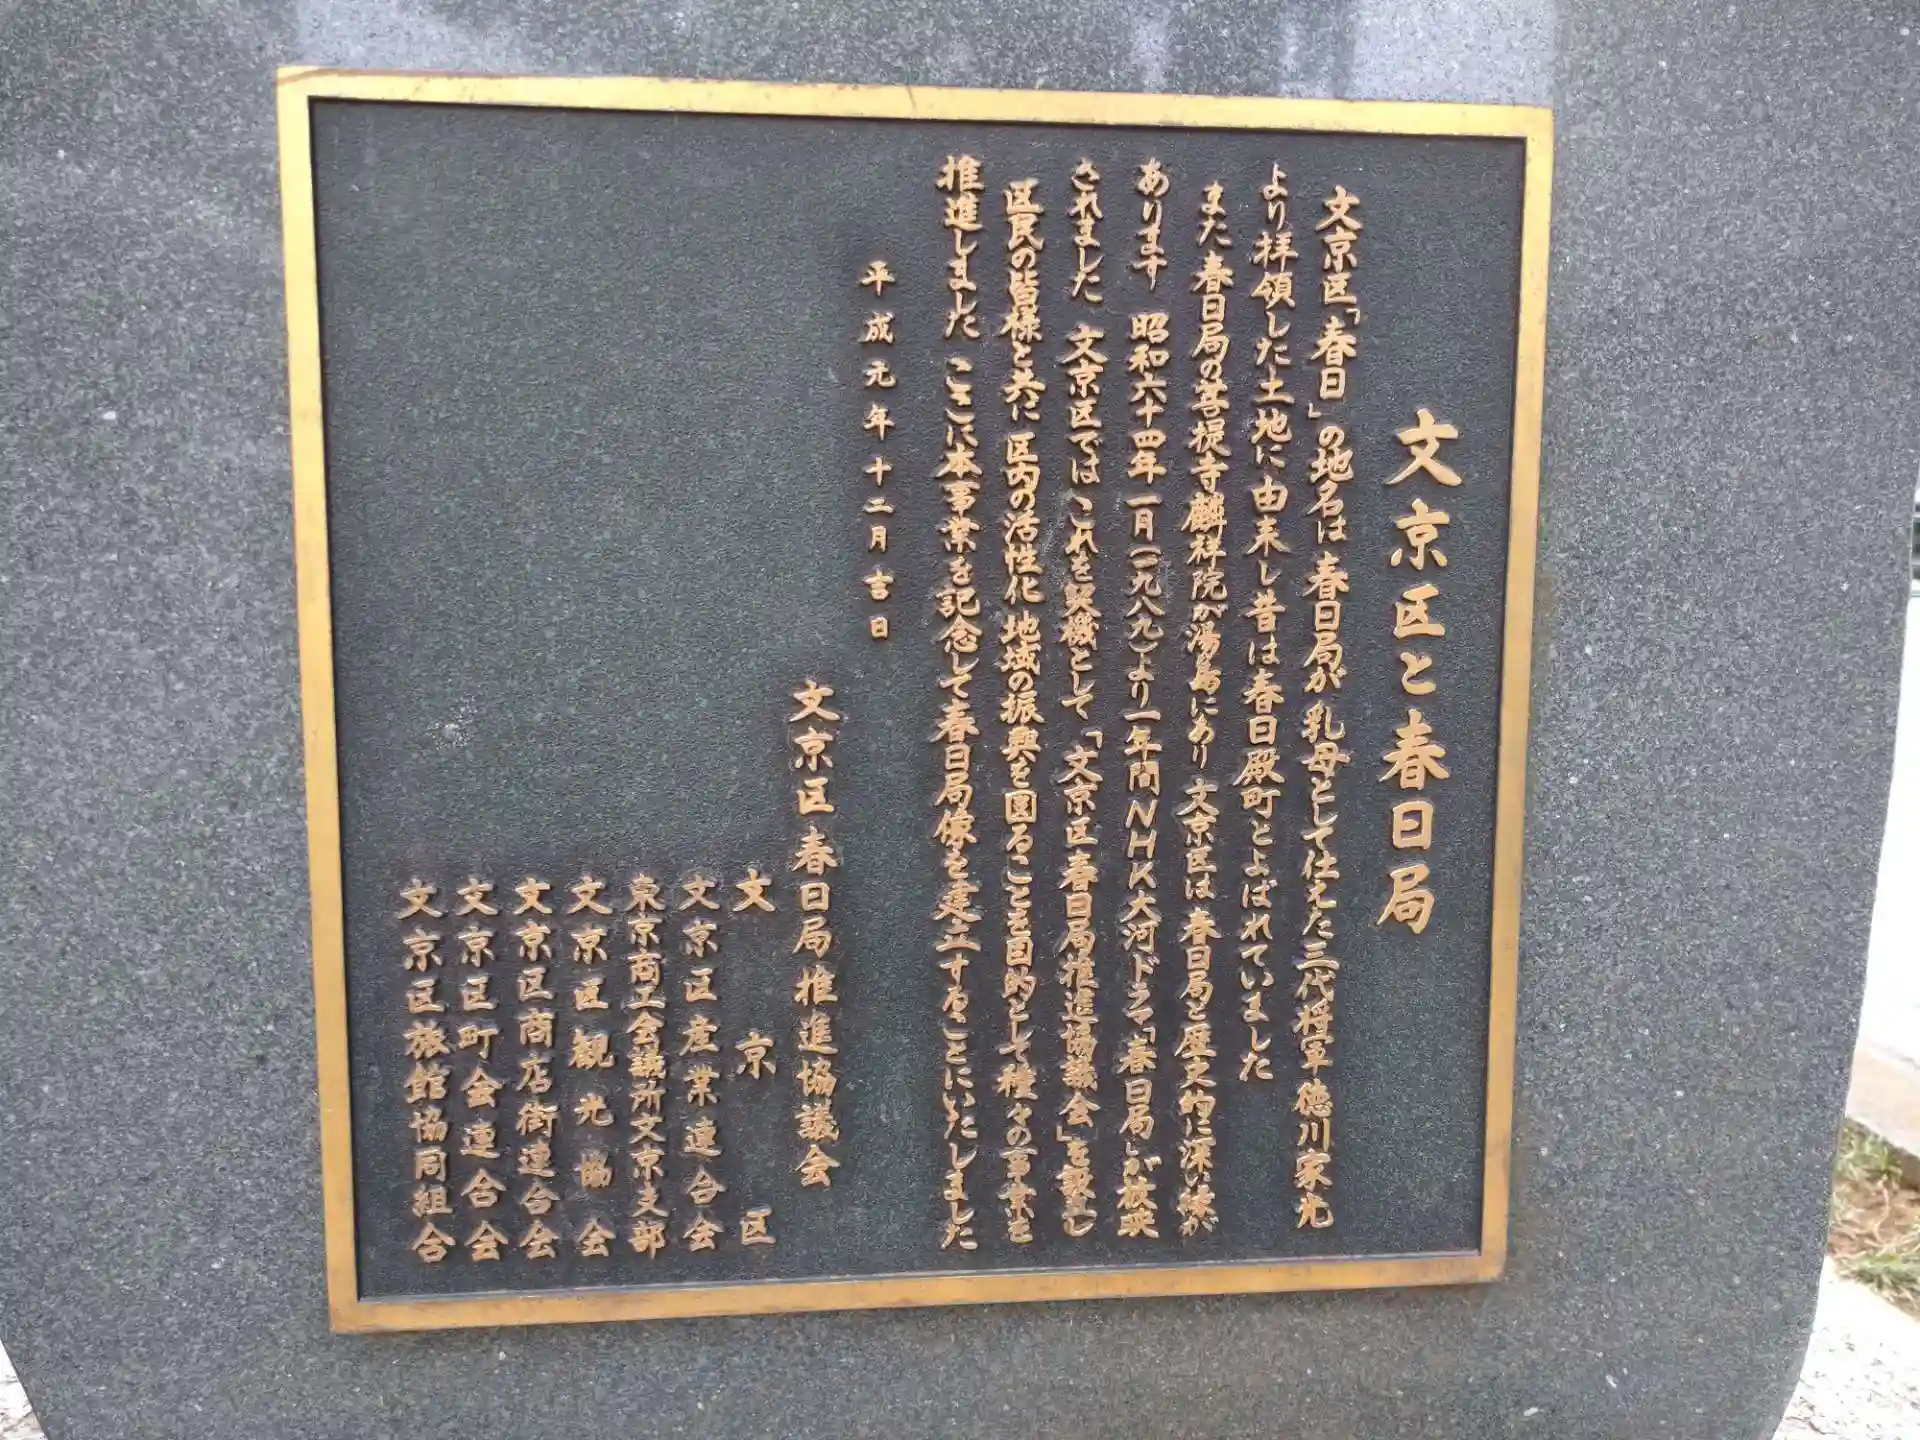 文京区と春日局
文京区「春日」の地名は春日局が乳母として仕えた三代将軍徳川家光
より拝領した土地に由来し昔は春日殿町とよばれていました
また春日局の菩提寺麟祥院が湯島にあり 文京区は春日局と歴史的に深い縁が
あります 昭和六十四年一月(一九八九)より一年間NHK大河ドラマ「春日局」が放映
されました 文京区では これを契機として「文京区春日局推進協議会」を設立し
区民の皆様と共に 区内の活性化 地域の振興を図ることを目的として種々の事業を
推進しました ここに本事業を記念して春日局像を建立することにいたしました
平成元年十二月吉日
文京区春日局推進協議会
文京区
文京区産業連合会
東京商工会議所文京支部
文京区観光協会
文京区商店街連合会
文京区町会連合会
文京区旅館協同組合